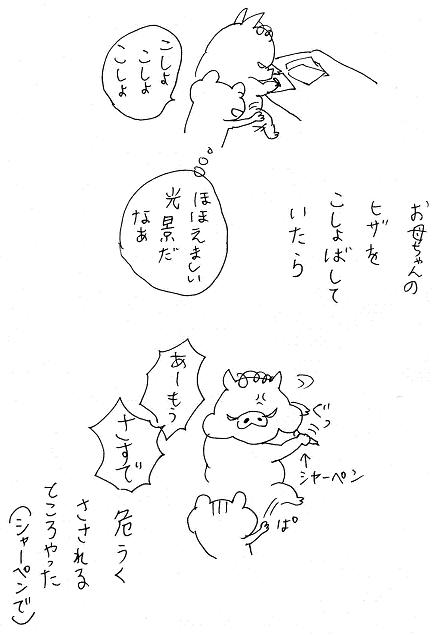 お母ちゃんの
ヒザを
こしょばして
いたら
こしょ
こしょ
こしょ
ほほえましい
光景だ
なぁ
あーもう
さすで
ぐっ
←シャーペン
ぱ°
危うく
さされる
ところやった
(シャーペンで)